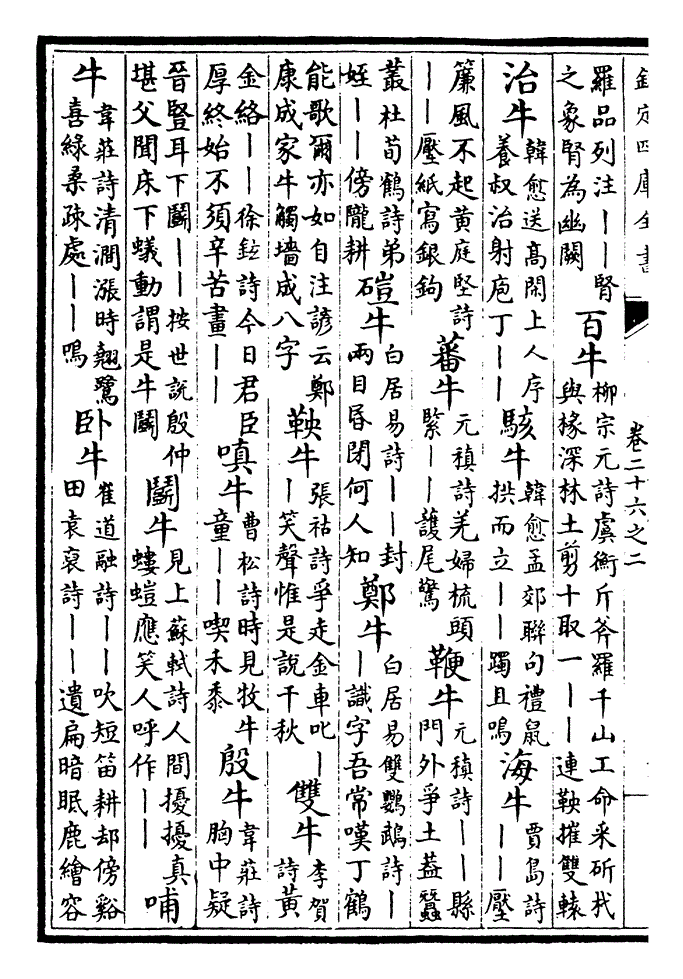 欽定四庫全書
卷二十六之二
羅品列注丨丨腎之象腎為幽闕 百牛 柳宗元詩虞衡斤斧羅千山工命采斫杙與椽深林土剪十取一丨丨連鞅摧雙轅
治牛 韓愈送高閑上人序養叔治射庖丁丨丨 駭牛 韓愈孟郊聯句禮鼠拱而立丨丨躅且鳴 海牛 賈島詩丨丨壓
簾風不起黃庭堅詩丨丨壓紙寫銀鉤 蕃牛 元稹詩羌婦梳頭緊丨丨護尾驚 鞭牛 元稹詩丨丨縣門外爭土蓋蠶
叢杜荀鶴詩弟姪丨丨傍隴耕 磑牛 白居易詩丨丨封兩目昏閉何人知 鄭牛 白居易雙鸚鵡詩丨丨識字吾常嘆丁鶴
能歌爾亦如自注諺云鄭康成家牛觸墻成八字 鞅牛 張祜詩爭走金車叱丨丨笑聲惟是說千秋 雙牛 李賀詩黃
金絡丨丨徐鉉詩今日君臣厚終始不須辛苦畫丨丨 嗔牛 曹松詩時見牧牛童丨丨喫禾黍 殷牛 韋莊詩胸中疑
晉豎耳下鬭丨丨按世說殷仲堪父聞床下蟻動謂是牛鬭 鬭牛 見上蘇軾詩人間擾擾真螻螘應笑人呼作丨丨 哺
牛 韋莊詩清澗漲時翹鷺喜綠桑疎處丨丨鳴 卧牛 崔道融詩丨丨吹短笛耕却傍谿田袁裒詩丨丨遺扁暗眠鹿繪容